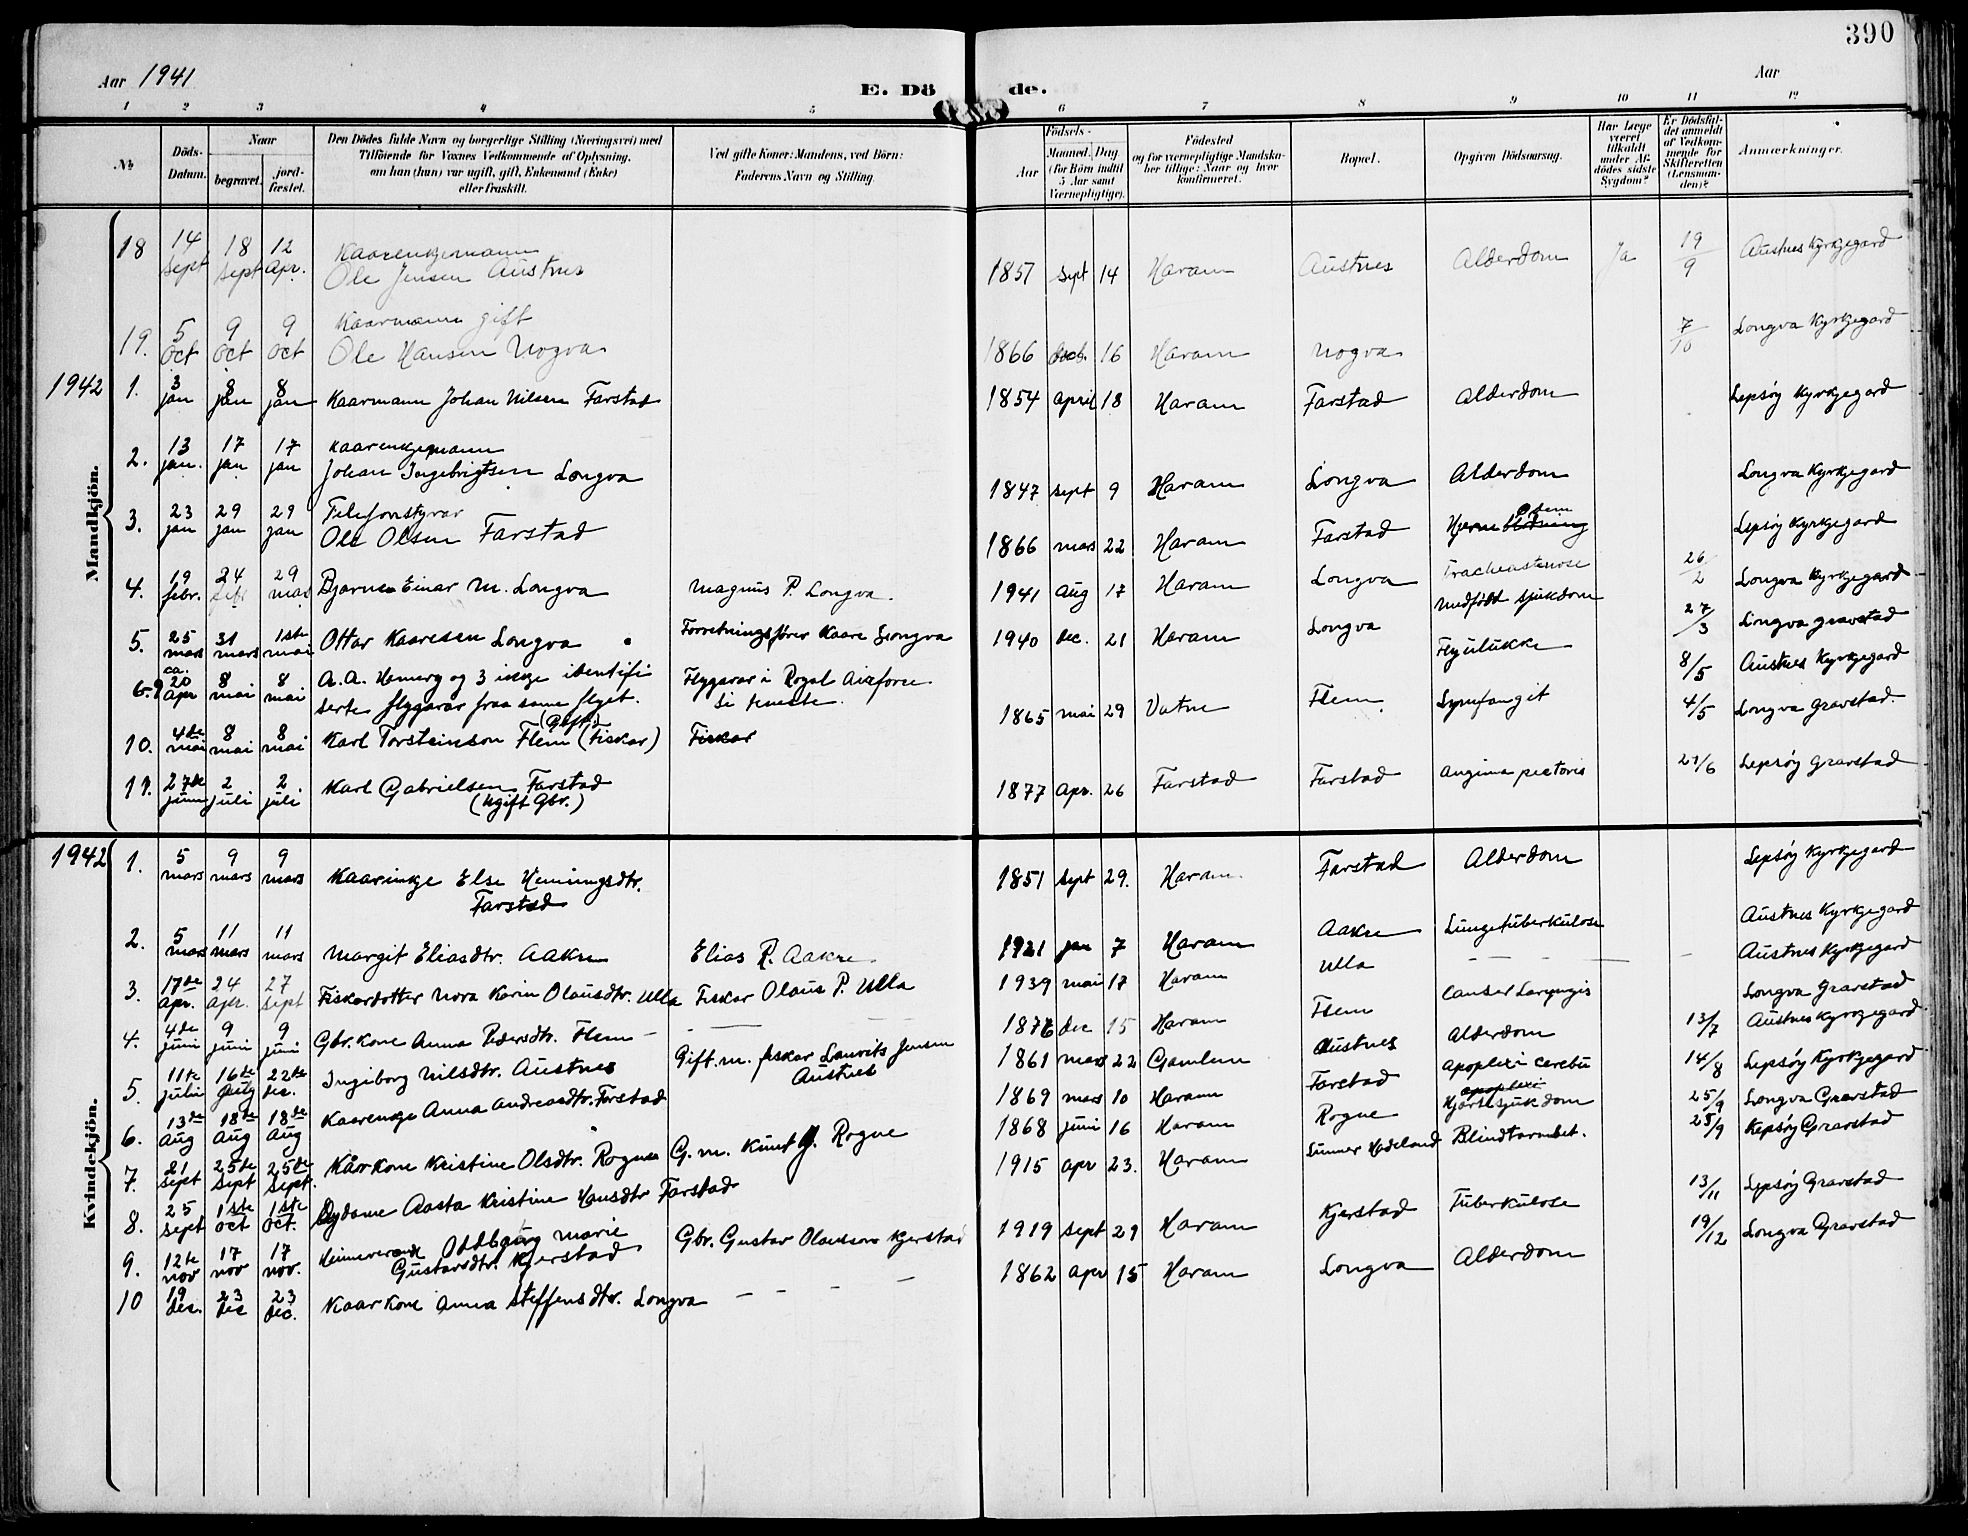 390
Aar 1941
E. Dö de.
Aar
1 2 3 4 5 6 7 8 9 10 11 12
№ Döds-Datum. Naar begravet. jord-fæstet. Den Dödes fulde Navn og borgerlige Stilling (Næringsvei) med Tilföiende for Voxnes Vedkommende af Oplysning, om han (hun) var ugift, gift, Enkemand (Enke) eller fraskilt. Ved gifte Koner: Mandens, ved Börn: Faderens Navn og Stilling. Födsels- Aar Maaned. Dag (for Börn indtil 5 Aar samt Værnepligtige). Födested og for værnepligtige Mandskaber tillige: Naar og hvor konfirmeret. Bopæl. Opgiven Dödsaarsag. Har Læge været tilkaldt under Afdödes sidste Sygdom? Er Dödsfaldet anmeldt af Vedkommende for Skifteretten (Lensmanden)? Anmærkninger.
Mandkjön.
18 14 Sept 18 Sept 12 Apr. Kaarenkjemann Ole Jensen Austnes 1857 Sept 14 Haram Austnes Alderdom Ja 19/9 Austnes Kyrkjegard
19. 5 Oct 9 Oct 9 Oct Kaarmann gift Ole Hansen Nogva 1866 16 Haram Nogva 7/10 Longva Kyrkjegard
1942 1. 3 jan 8 jan 8 jan Kaarmann Johan Nilsen Farstad 1854 april 18 Haram Farstad Alderdom Lepsöy Kyrkjegard
2. 13 jan. 17 jan 17 jan Kaarenkjemann Johan Ingebrigtsen Longva 1847 sept 9 Haram Longva Alderdom Longva Kyrkjegard
3. 23 jan 29 jan 29 jan Telefonstyrar Ole Olsen Farstad 1866 mars 22 Haram Farstad Hjerneblödning Lepsöy Kyrkjegard
4. 19 febr. 24 febr 29 mars Bjarne Einar M. Longva Magnus P. Longva. 1941 Aug 17 Haram Longva Tracheastenose 26/2 Longva Kyrkjegard
5. 25 mars 31 mars 1ste mai Ottar Kaaresen Longva Forretningsförer Kaare Longva 1940 dec. 21 Haram Longva Medfödt sjukdom 27/3 Longva gravstad
6-9 ca. 20 Apr 8 mai 8 mai A. A. Hemerg og 3 ikkje identifiserte flygarar fraa same flyet. Flygarar i Royal Airforce si teneste. Flyulukke 8/5 Austnes Kyrkjegard
10. 4de mai 8 mai 8 mai Karl Torsteinson Flem (Gift) (Fiskar) Fiskar 1865 mai 29 Vatne Flem 4/5 Longva gravstad.
11. 27de juni 2 juli 2. juli Karl Gabrielsen Farstad (Ugift Gbr.) 1877 Apr. 26 Farstad Farstad Angina pectoris 29/6 Lepsöy Gravstad
Kvindekjön.
1942 1. 5 mars 9 mars 9 mars Kaarinkje Else Henningsdtr. Farstad 1851 sept 29. Haram Farstad Alderdom Lepsöy Kyrkjegard
2. 5 mars 11 mars 11 mars Margit Eliasdtr. Aakre Elias R. Aakre. 1921 jan 7 Haram Aakre Lungetuberkulose Austnes Kyrkjegard
3. 17de Apr. 24 apr. 27 Sept Fiskardotter Nora Karin Olausdtr. Ulla Fiskar Olaus P. Ulla 1939 mai 17 Haram Ulla – – – – – Austnes Kyrkjegard
4. 4de juni 9 juni 9 juni Gbr. Kone Anna Pedersdtr. Flem – – – 1876 dec 15 Haram Flem Canser Laryngis Longva Gravstad
5 11te julii 16de Aug 22de Dec. Ingiborg Nilsdtr. Austnes Gift. m. fiskar Lauvits Jensen Austnes 1861 mars 22 Gamlem Austnes Alderdom 13/7 Austnes Kyrkjegard
6. 13de Aug 18de Aug 18de Aug Kaarenkje Anna Andreasdtr. Farstad 1869 mars 10 Haram Farstad Apoplexi cerebri 14/8 Lepsöy Kyrkjegard
7. 21 sept 25de Sept 25de Sept. Kår kone Kristine Olsdtr. Rogne G. m. Knut J. Rogne 1868 juni 16 Haram Rogne apoplexi Hjertesjukdom 25/9 Longva Gravstad
8. 25 Sept 1ste Oct 1ste Oct. Sydame Aasta Kristine Hansdtr Farstad 1915 apr 23. Haram Lunner Hadeland Blindtarmbet. 28/9 Lepsöy Gravstad
9. 12te nov 17 nov 17 nov. Heimeverande Oddbjørg Marie Gustavsdtr. Kjerstad Gbr. Gustav Olausson Kjerstad 1919 Sept 29 Haram Kjerstad Tuberkulose 13/11 Lepsöy Gravstad
10 19 dec. 23 dec 23 dec. Kaar Kone Anna Steffensdtr. Longva – – – – 1862 apr 15 Haram Longva Alderdom 19/12 Longva Gravstad